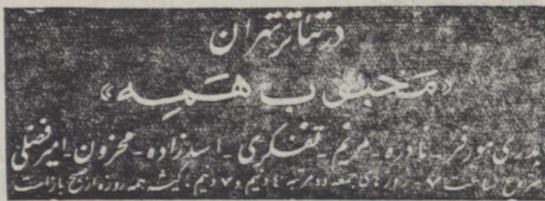 در تئاتر تهران
«محبوب همه»
بدری هورفر - نادره - مریم - تفکری - اسدزاده - محزون - امیرفضلی
شروع ساعت ۷ - روزهای جمعه دو مرتبه ۴ و نیم و ۷ و نیم، گیشه همه روزه از صبح باز است